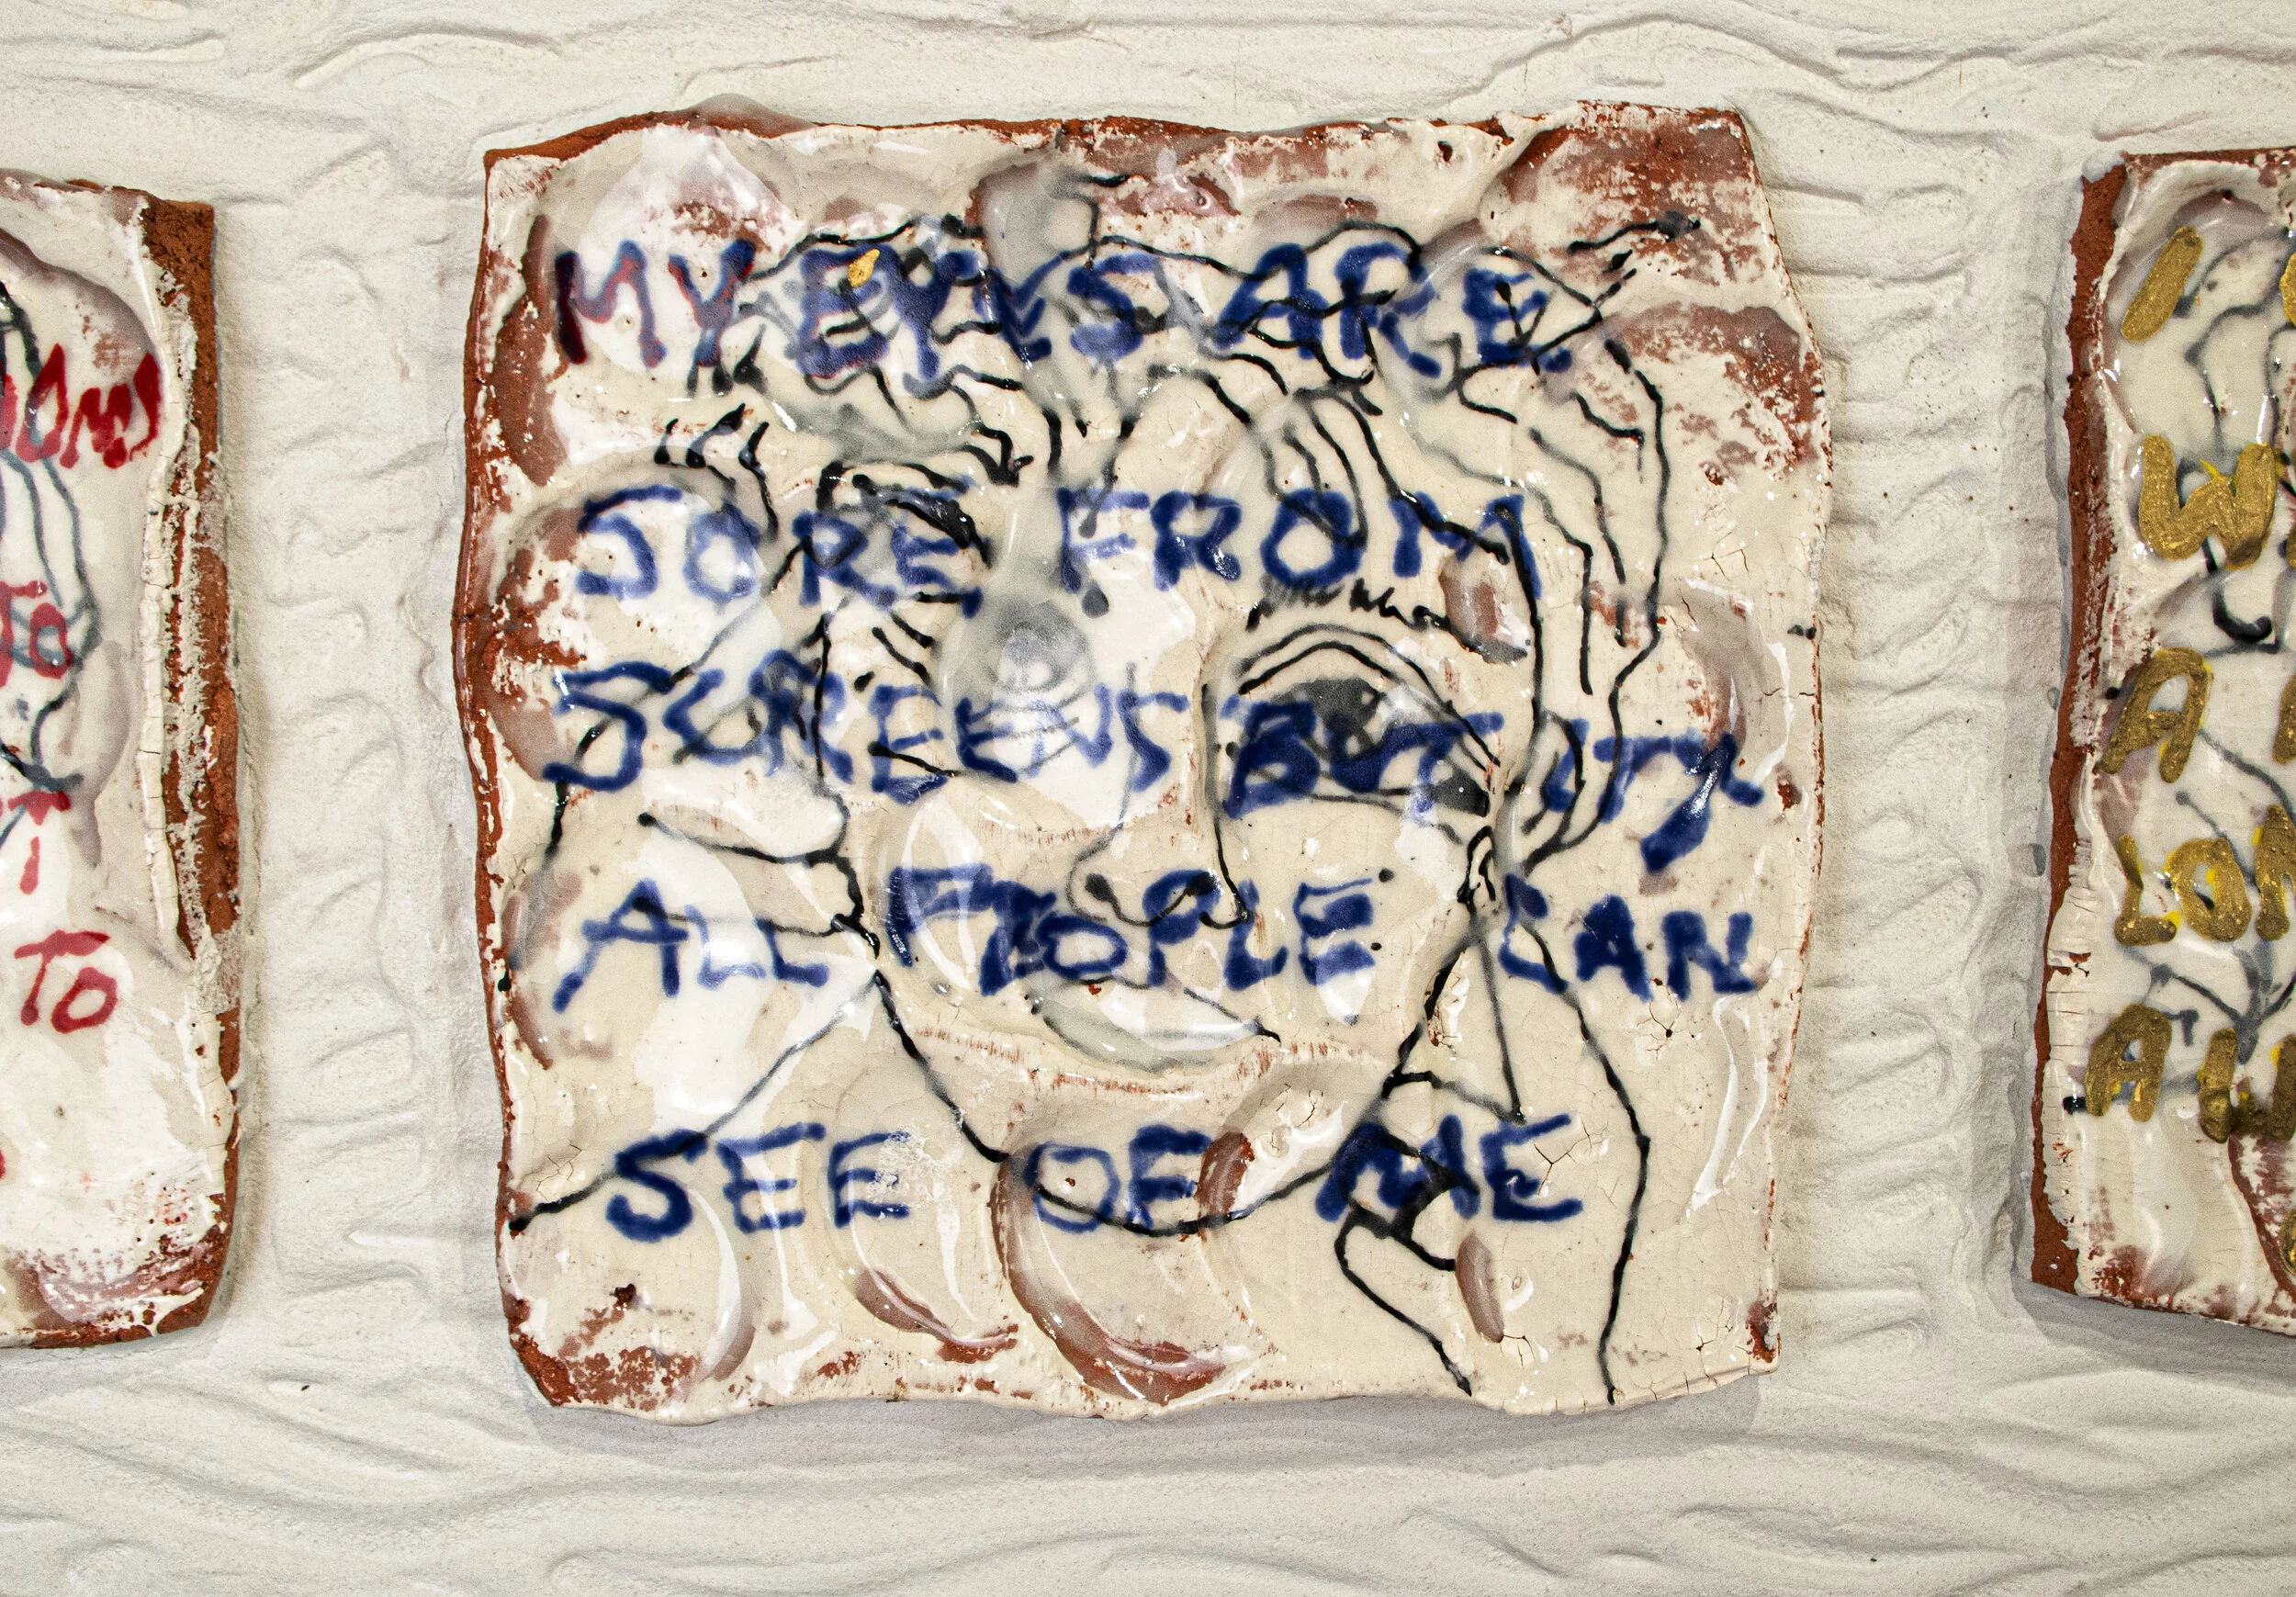 TO
TO
MY EYES ARE
SORE FROM
SCREENS BUT IT'S
ALL PEOPLE CAN
SEE OF ME
I
W
A
LON